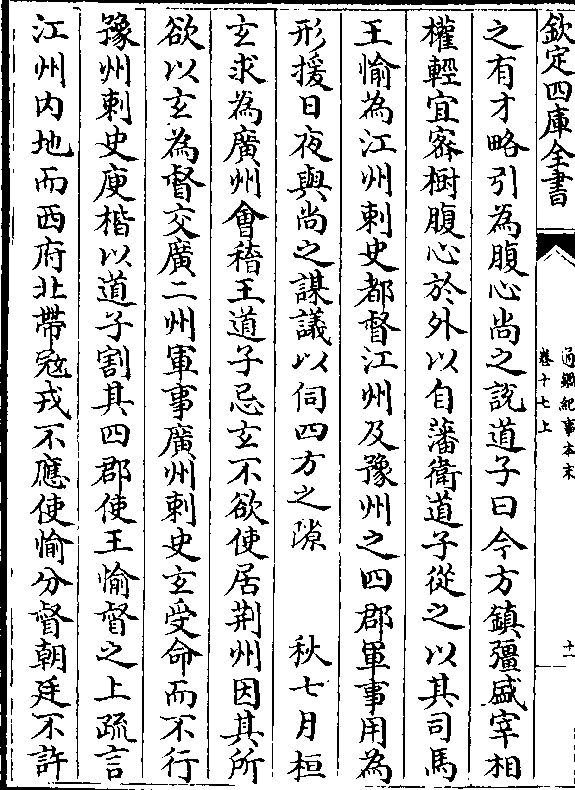 欽定四庫全書
通鑑紀事本末
卷十七上
十一
之有才略引為腹心尚之說道子曰今方鎮彊盛宰相
權輕宜密樹腹心於外以自藩衛道子從之以其司馬
王愉為江州刺史都督江州及豫州之四郡軍事用為
形援日夜與尚之謀議以伺四方之隙　秋七月桓
玄求為廣州會稽王道子忌玄不欲使居荆州因其所
欲以玄為督交廣二州軍事廣州刺史玄受命而不行
豫州刺史庾楷以道子割其四郡使王愉督之上疏言
江州内地而西府北帶宼戎不應使愉分督朝廷不許